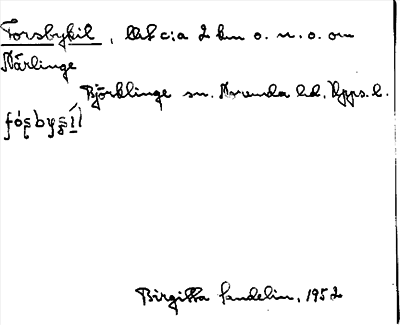 Forsbykil, ukt c:a 2 km o.n.o. om
Närlinge
Björklinge sn. Norunda hd. Upps. l.
Birgitta Sundelin, 1952